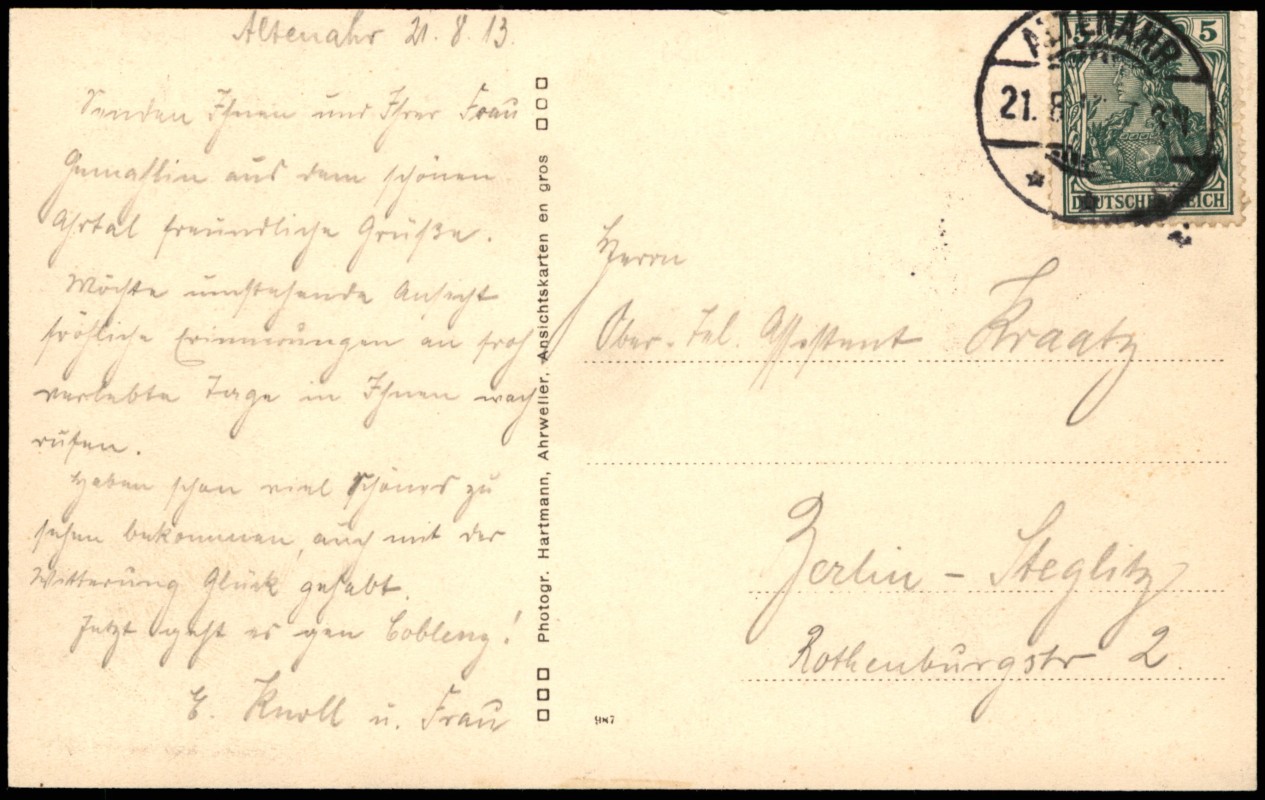 Altenahr 21. 8. 13.
Senden Ihnen und Ihrer Frau
Gemahlin aus dem schönen
Ahrtal freundliche Grüße.
Möchte umstehende Ansicht
fröhliche Erinnerungen an froh
verlebte Tage in Ihnen wach
rufen.
Haben schon viel Schönes zu
sehen bekommen, auch mit der
Witterung Glück gehabt.
Jetzt geht es gen Coblenz!
E. Knoll u. Frau
Photogr. Hartmann, Ahrweiler, Ansichtskarten en gros
ALTENAHR
21. 8
5
DEUTSCHES REICH
Herrn
Ober-Tel. Assistent Kraatz
Berlin - Steglitz
Rothenburgstr 2.
987